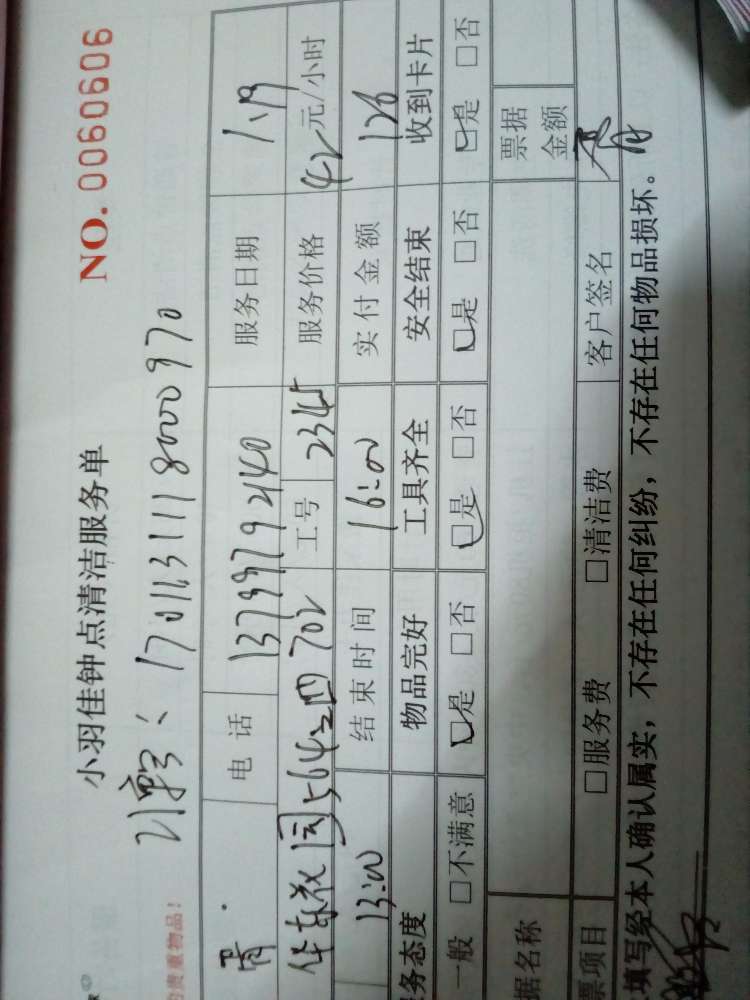 小羽佳钟点清洁服务单 NO. 0060606
1701131118000970
的贵重物品!
电话 服务日期 1.19
工号 2345 服务价格 42 元/小时
13:00 结束时间 16:00 实付金额 126
务态度 物品完好 工具齐全 安全结束 收到卡片
一般 □不满意 □是 □否 □是 □否 □是 □否 □是 □否
据名称 票据金额
票项目 □服务费 □清洁费 客户签名
填写经本人确认属实，不存在任何纠纷，不存在任何物品损坏。